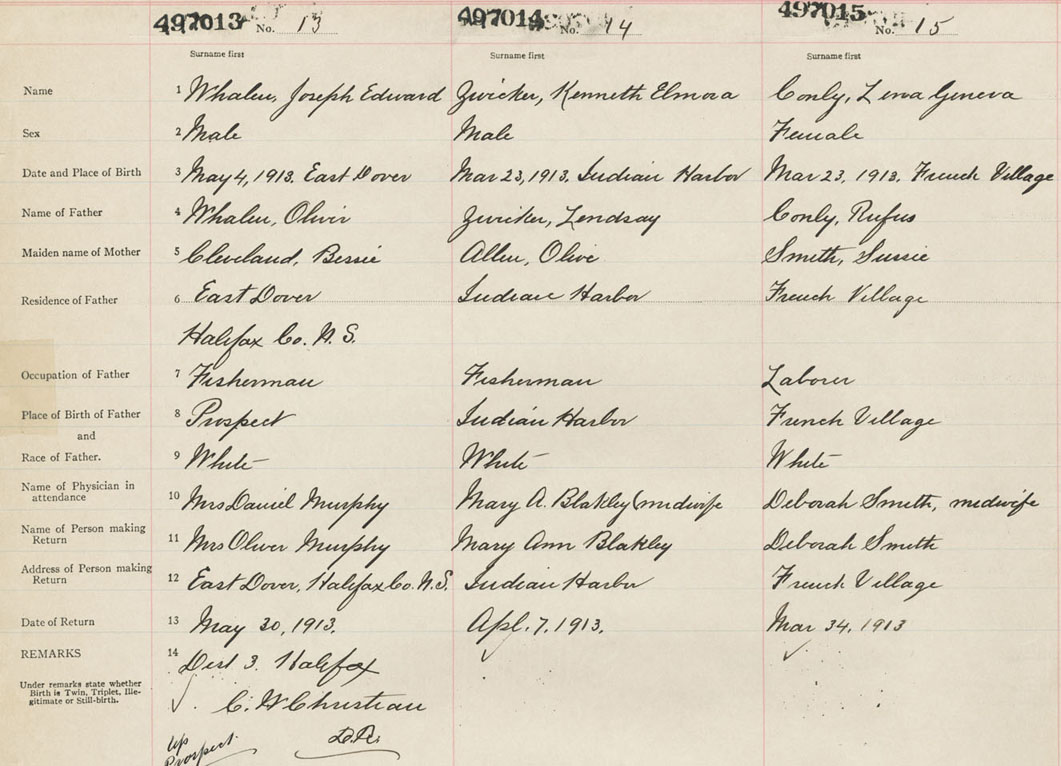 497013 No. 13 497014 No. 14 497015 No. 15
Surname first Surname first Surname first
Name 1 Whalen, Joseph Edward Zwicker, Kenneth Elmora Conly, Lena Geneva
Sex 2 Male Male Female
Date and Place of Birth 3 May 4, 1913. East Dover Mar 23, 1913. Indian Harbor Mar 23, 1913. French Village
Name of Father 4 Whalen, Oliver Zwicker, Lendsay Conly, Rufus
Maiden name of Mother 5 Cleveland, Bessie Allen, Olive Smith, Sussie
Residence of Father 6 East Dover Indian Harbor French Village
Halifax Co. N.S.
Occupation of Father 7 Fisherman Fisherman Laborer
Place of Birth of Father 8 Prospect Indian Harbor French Village
and
Race of Father. 9 White White White
Name of Physician in
attendance 10 Mrs Daniel Murphy Mary A. Blakley (midwife Deborah Smith, midwife
Name of Person making
Return 11 Mrs Oliver Murphy Mary Ann Blakley Deborah Smith
Address of Person making
Return 12 East Dover, Halifax Co. N.S. Indian Harbor French Village
Date of Return 13 May 30, 1913. Apl. 7. 1913. Mar 34. 1913
REMARKS 14 Dist 3. Halifax
Under remarks state whether
Birth is Twin, Triplet, Ille-
gitimate or Still-birth.
C. W Christian
D.R.
Up
Prospect.